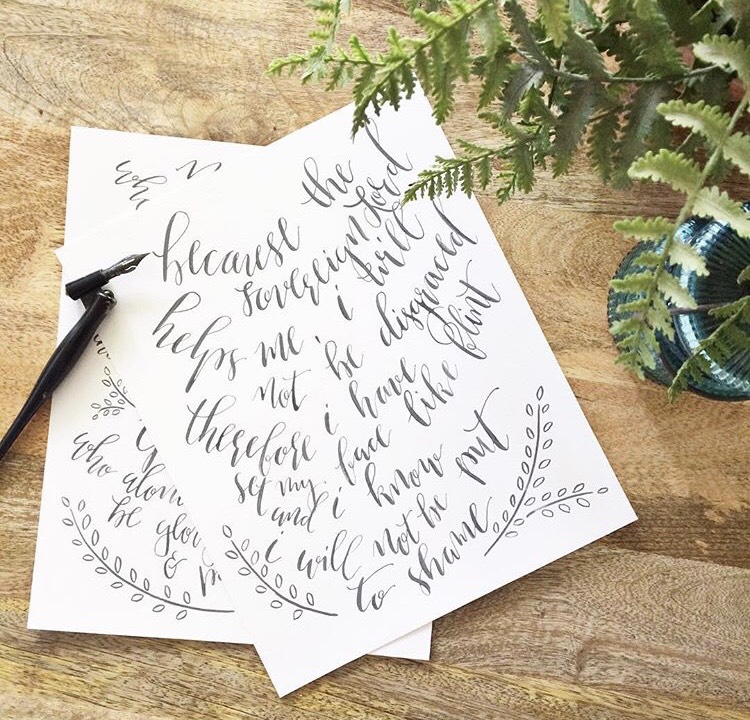 because the
sovereign Lord
helps me, i will
not be disgraced
therefore i have
set my face like flint
and i know
i will not be put
to shame
who
be
&